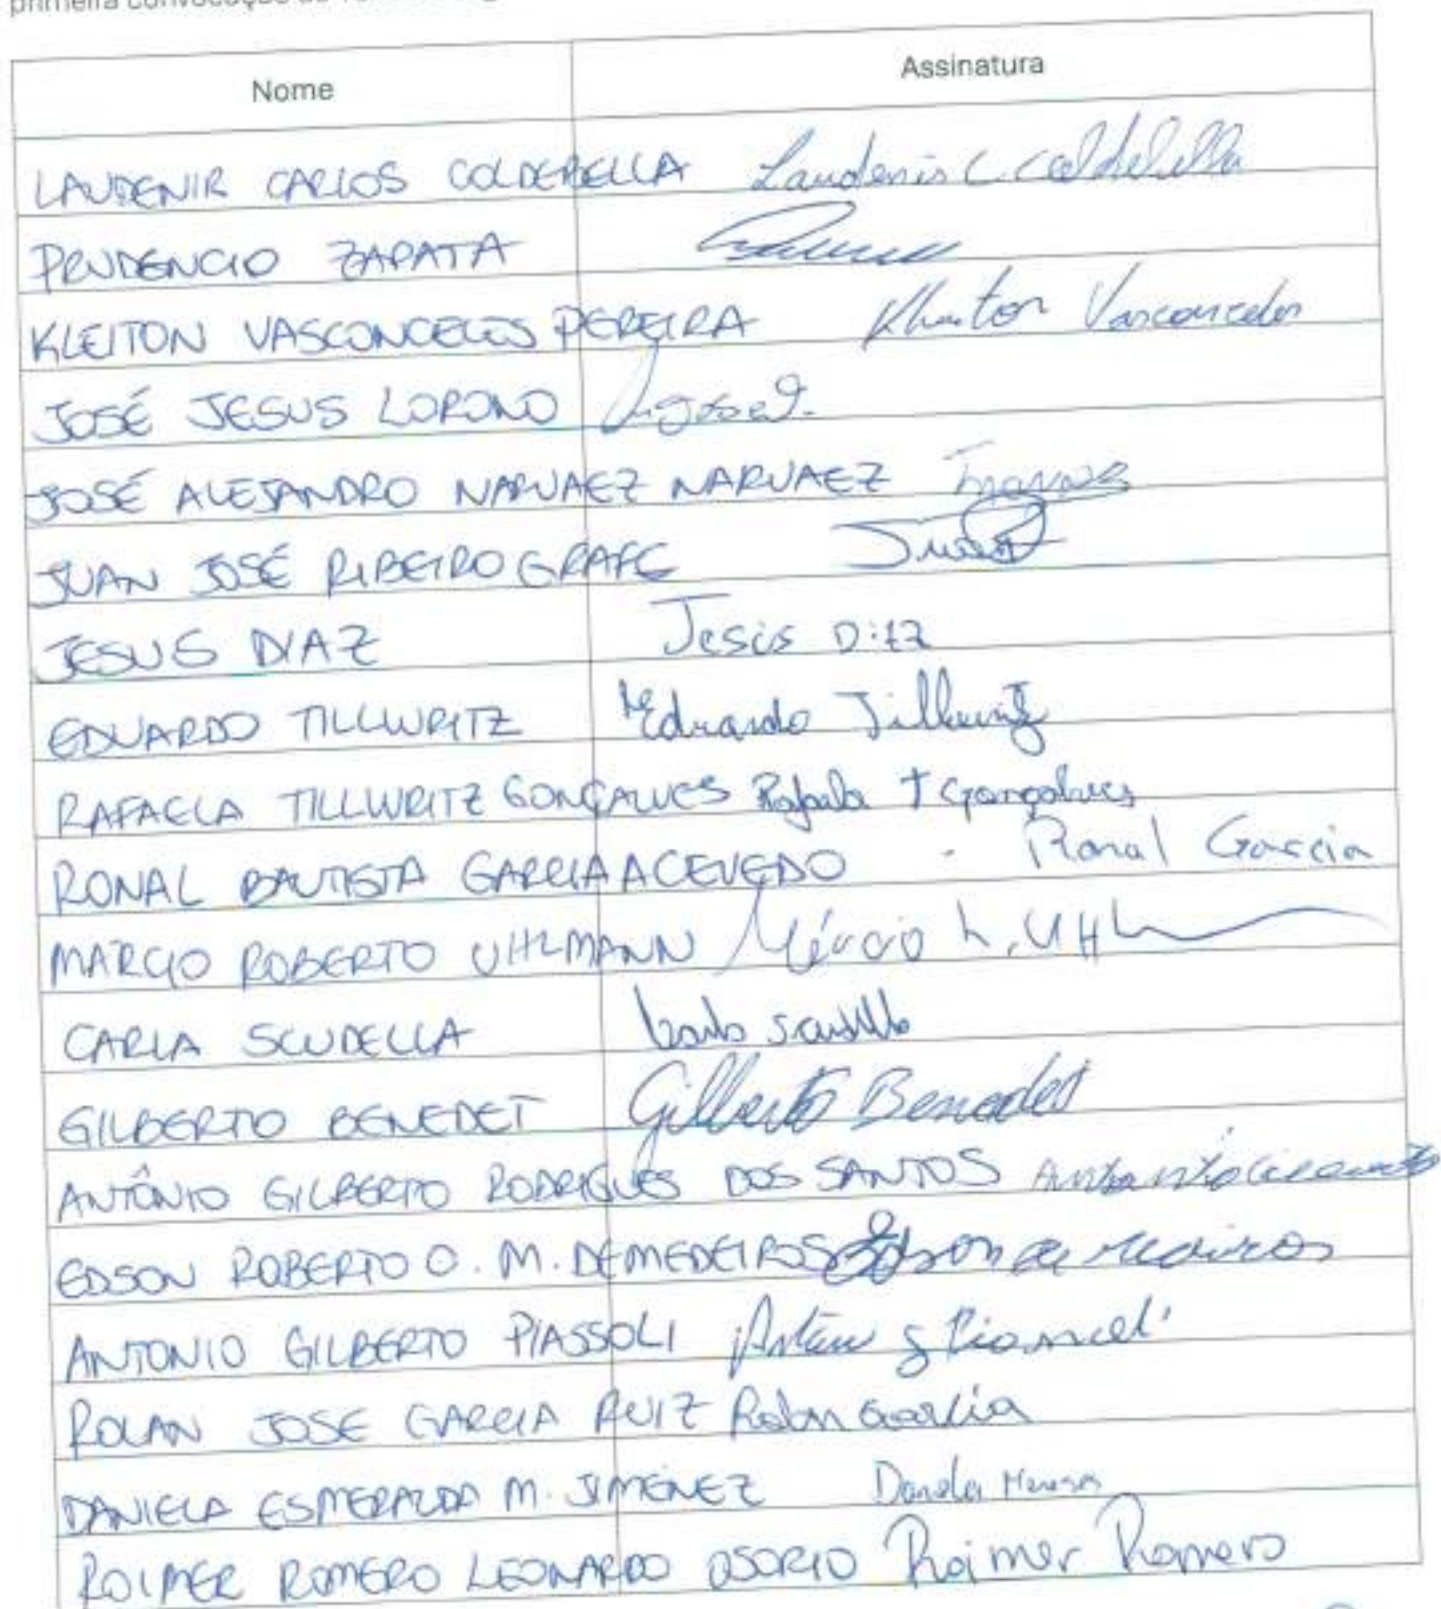 primeira convocação
Nome Assinatura
LAUDENIR CARLOS COLDEBELLA Laudenir C Coldebella
PRUDENCIO ZAPATA
KLEITON VASCONCELOS PEREIRA Kleiton Vasconcelos
JOSÉ JESUS LORONO José J.
JOSÉ ALEJANDRO NARVAEZ NARVAEZ
JUAN JOSÉ RIBEIRO GRAFE
JESUS DIAZ Jesus Diaz
EDUARDO TILLWRITZ Eduardo Tillwritz
RAFAELA TILLWRITZ GONÇALVES Rafaela T Gonçalves
RONAL BAUTISTA GARCIA ACEVEDO Ronal Garcia
MÁRCIO ROBERTO UHLMANN Márcio R. UHL
CARLA SCUDELLA Carla Scudella
GILBERTO BENEDET Gilberto Benedet
ANTÔNIO GILBERTO RODRIGUES DOS SANTOS Antonio
EDSON ROBERTO O. M. DE MEDEIROS Edson de Medeiros
ANTONIO GILBERTO PIASSOLI
ROLAN JOSE GARCIA RUIZ Rolan Garcia
DANIELA ESMERALDA M. JIMÉNEZ Daniela
ROIMER ROMERO LEONARDO OSORIO Roimer Romero